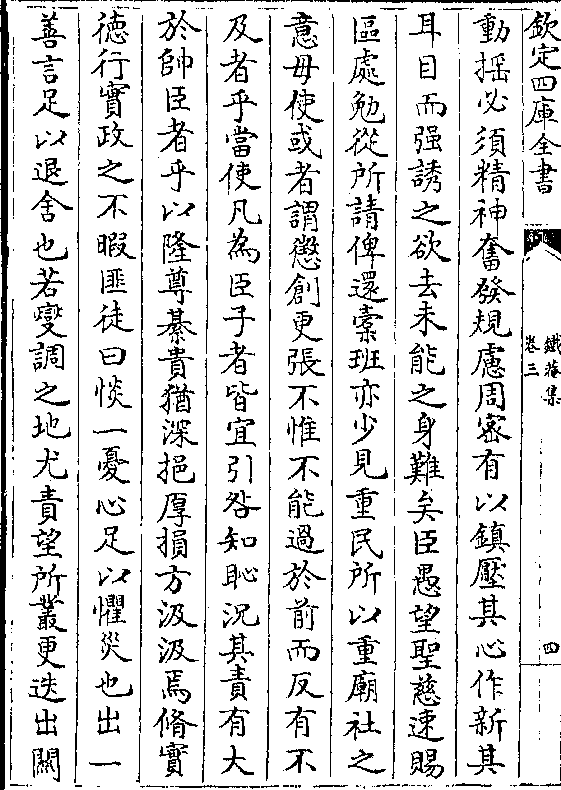 欽定四庫全書
鐵菴集
卷三
四
動揺必須精神奮發規慮周密有以鎮壓其心作新其
耳目而强誘之欲去未能之身難矣臣愚望聖慈速賜
區處勉從所請俾還橐班亦少見重民所以重廟社之
意毋使或者謂懲創更張不惟不能過於前而反有不
及者乎當使凡為臣子者皆宜引咎知恥況其責有大
於帥臣者乎以隆尊綦貴猶深挹厚損方汲汲焉脩實
徳行實政之不暇匪徒曰惔一憂心足以懼災也出一
善言足以退舍也若變調之地尤責望所叢更迭出關